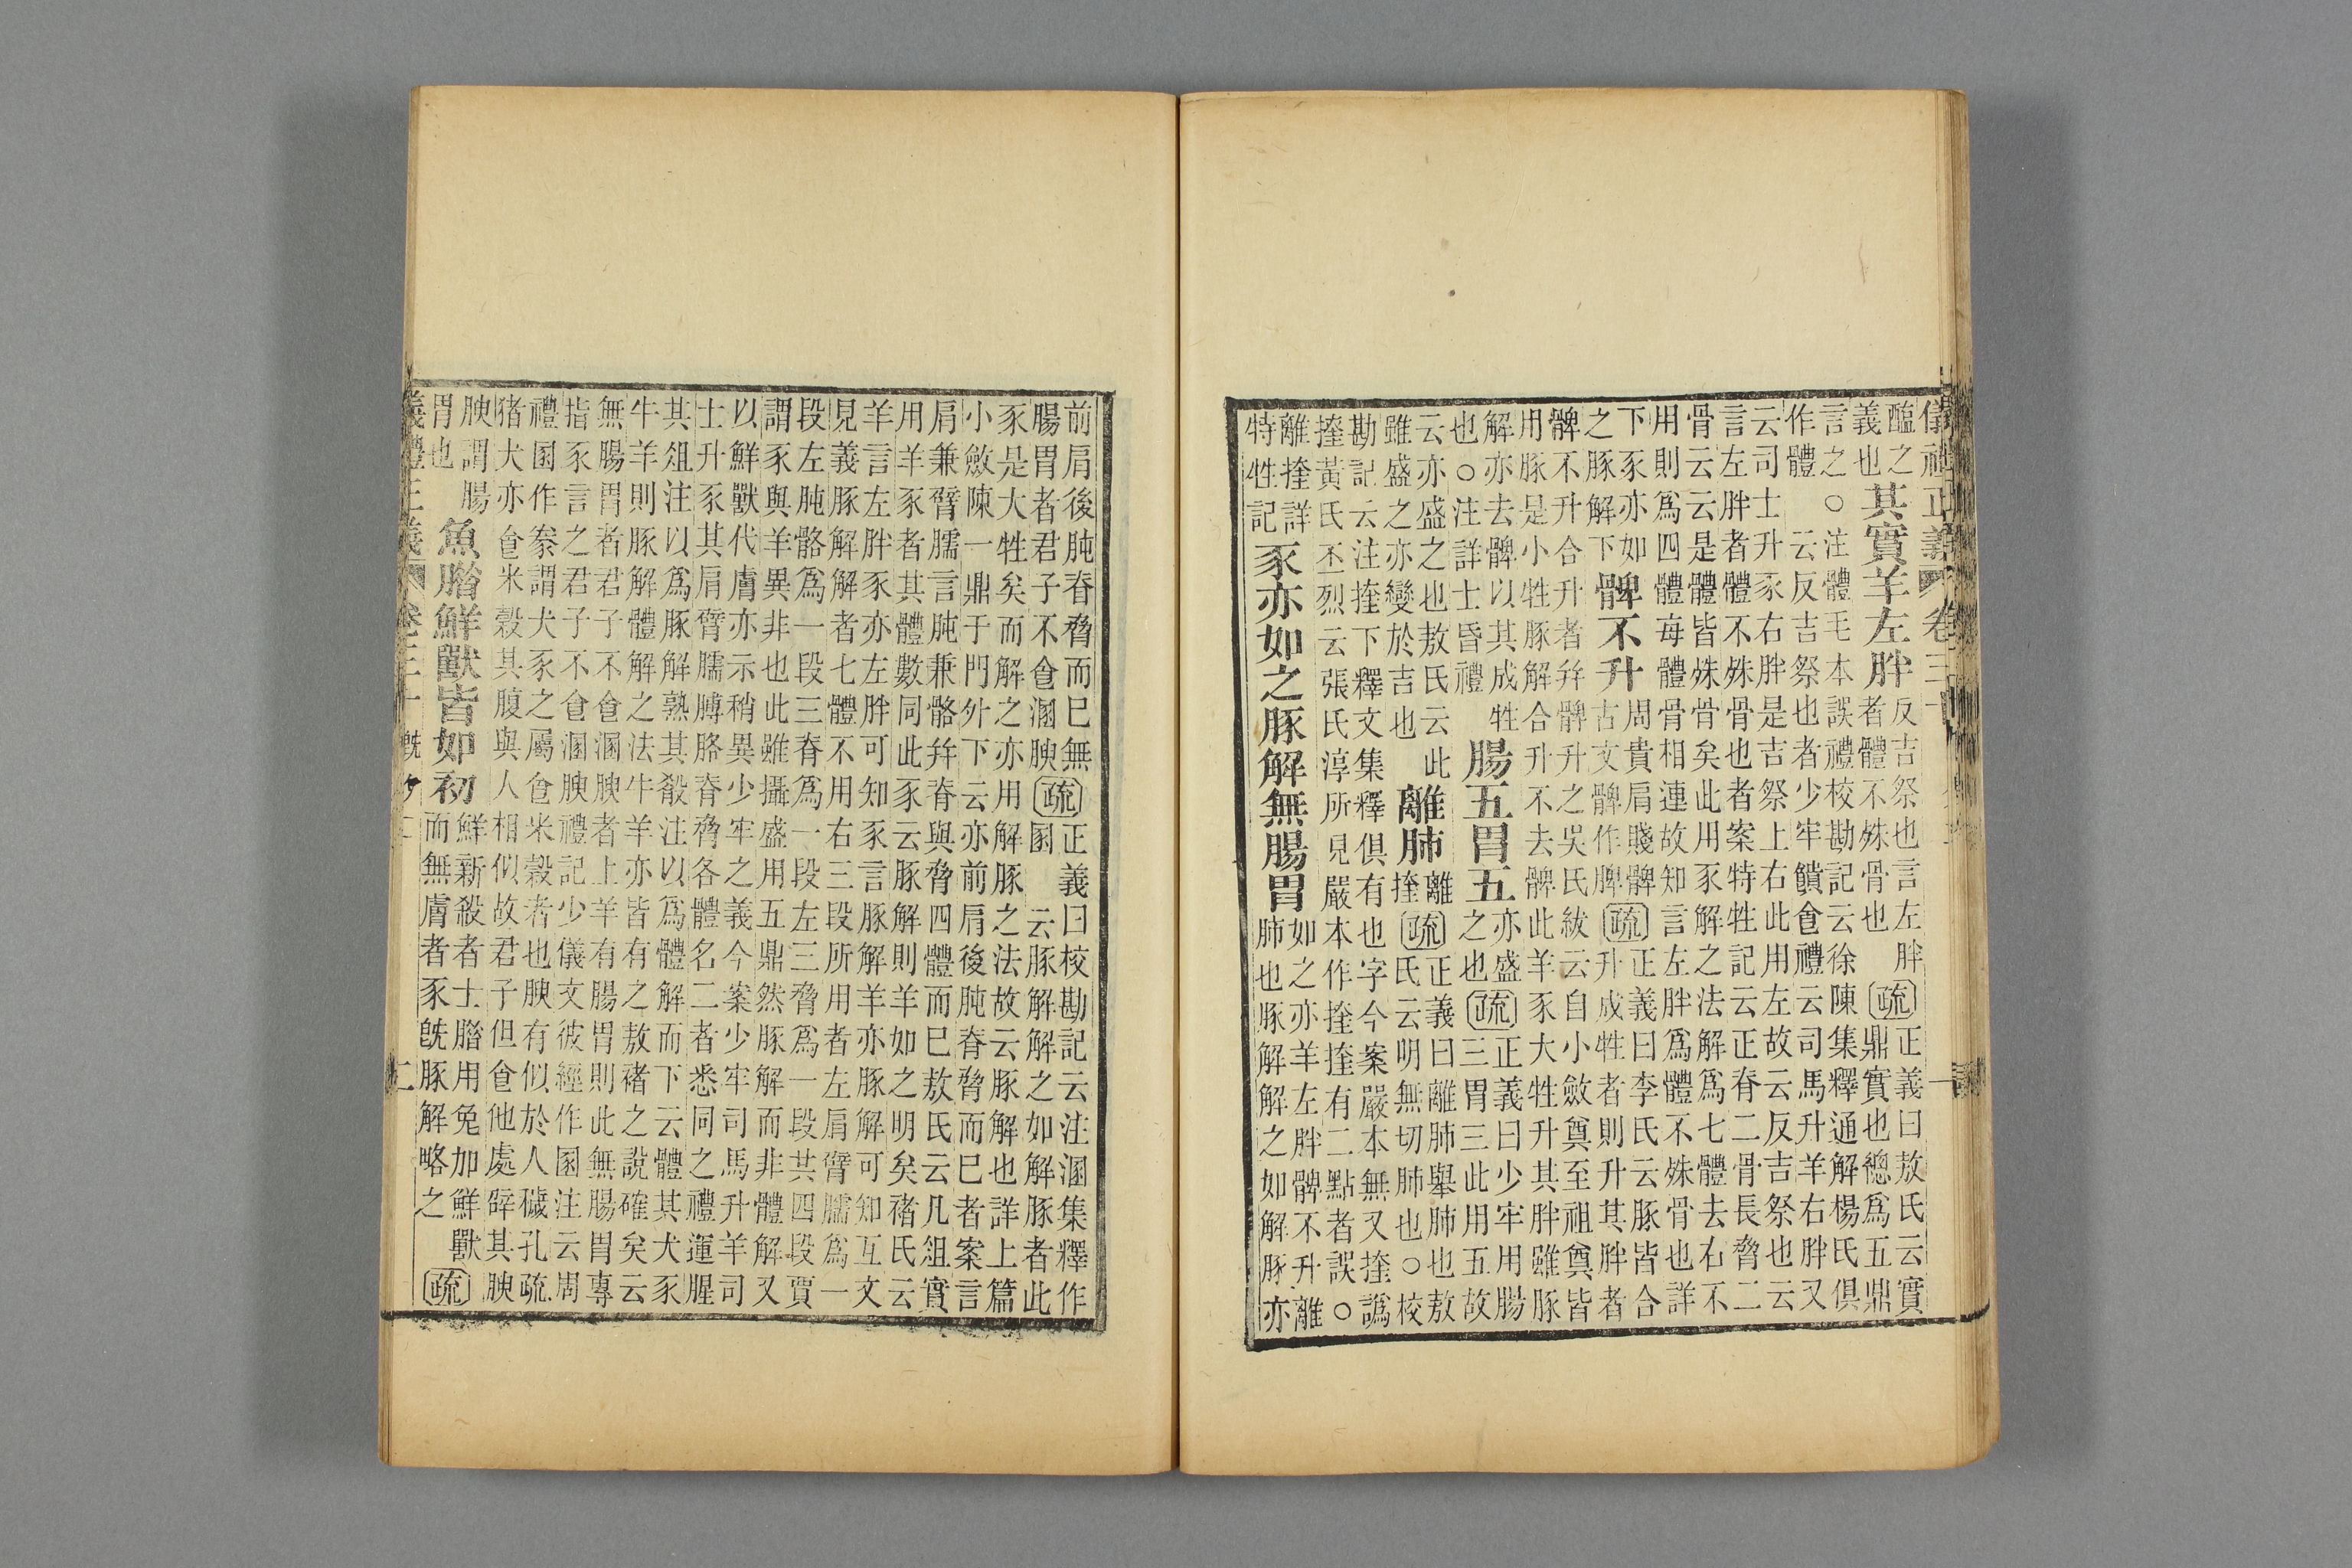 儀禮正義 卷三十
醢之義也其實羊左胖反吉祭也言左胖者體不殊骨也疏正義曰敖氏云實鼎實也總爲五鼎
言之○注體毛本誤禮校勘記云徐陳集釋通解楊氏俱
作體 云反吉祭也者少牢饋食禮云司馬升羊右胖又
云司士升豕右胖是吉祭上右此用左故云反吉祭也云
言左胖者體不殊骨也者案特牲記云正脊二骨長脅二
骨云云是體皆殊骨矣此用豕解之法解爲七體去右不
用則爲四體每體骨相連故知言左胖爲體不殊骨也詳
下豕亦如之豚解下髀不升周貴肩賤髀古文髀作脾疏正義曰李氏云豚皆合升成牲者則升其胖者
髀不升合升者并髀升之吳氏紱云自小斂奠至祖奠皆
用豚是小牲豚解合升不去髀此羊豕大牲升其胖雖豚
解亦去髀以其成牲也○注詳士昏禮腸五胃五亦盛之也疏正義曰少牢用腸三胃三此用五故
云亦盛之也敖氏云此雖盛之亦變於吉也離肺離㨒疏正義曰離肺舉肺也敖氏云明無切肺也○校
勘記云注㨒下釋文集釋俱有也字今案嚴本無又㨒譌
㨒黃氏丕烈云張氏淳所見嚴本作㨒㨒有二點者誤○
離㨒詳特牲記豕亦如之豚解無腸胃如之亦羊左胖髀不升離肺也豚解解之如解豚亦
前肩後肫脊脅而已無腸胃者君子不食溷腴疏正義曰校勘記云注溷集釋作圂 云豚解解之如解豚者此
豕是大牲矣而解之亦用解豚之法故云豚解也詳上篇
小斂陳一鼎于門外下云亦前肩後肫脊脅而已者案言
肩兼臂臑言肫兼骼并脊與脅四體而已敖氏云凡俎實
用羊豕者其體數同此豕云豚解則羊如之明矣褚氏云
羊言左胖豕亦左胖可知豕言豚解羊亦豚解可知互文
見義豚解解者七體不用右三段所用者左肩臂臑爲一
段左肫骼爲一段三脊爲一段左三脅爲一段共四段賈
謂豕與羊異非也此雖攝盛用五鼎然豚解而非體解又
以鮮獸代膚亦示稍異少牢之義今案少牢司馬升羊司
士升豕其肩臂臑膊骼脊脅各體名二者悉同之禮運腥
其俎注以爲豚解熟其殽注以爲體解而下云體其犬豕
牛羊則豚解體解之法牛羊亦皆有之敖褚之說確矣云
無腸胃者君子不食溷腴者上羊有腸胃則此無腸胃專
指豕言之君子不食溷腴禮記少儀文彼經作圂注云周
禮圂作豢謂犬豕之屬食米穀者也腴有似於人穢孔疏
豬犬亦食米穀其腹與人相似故君子但食他處辟其腴
腴謂腸胃也魚腊鮮獸皆如初鮮新殺者士腊用兔加鮮獸而無膚者豕旣豚解略之疏
儀禮正義 卷三十 旣夕二 二